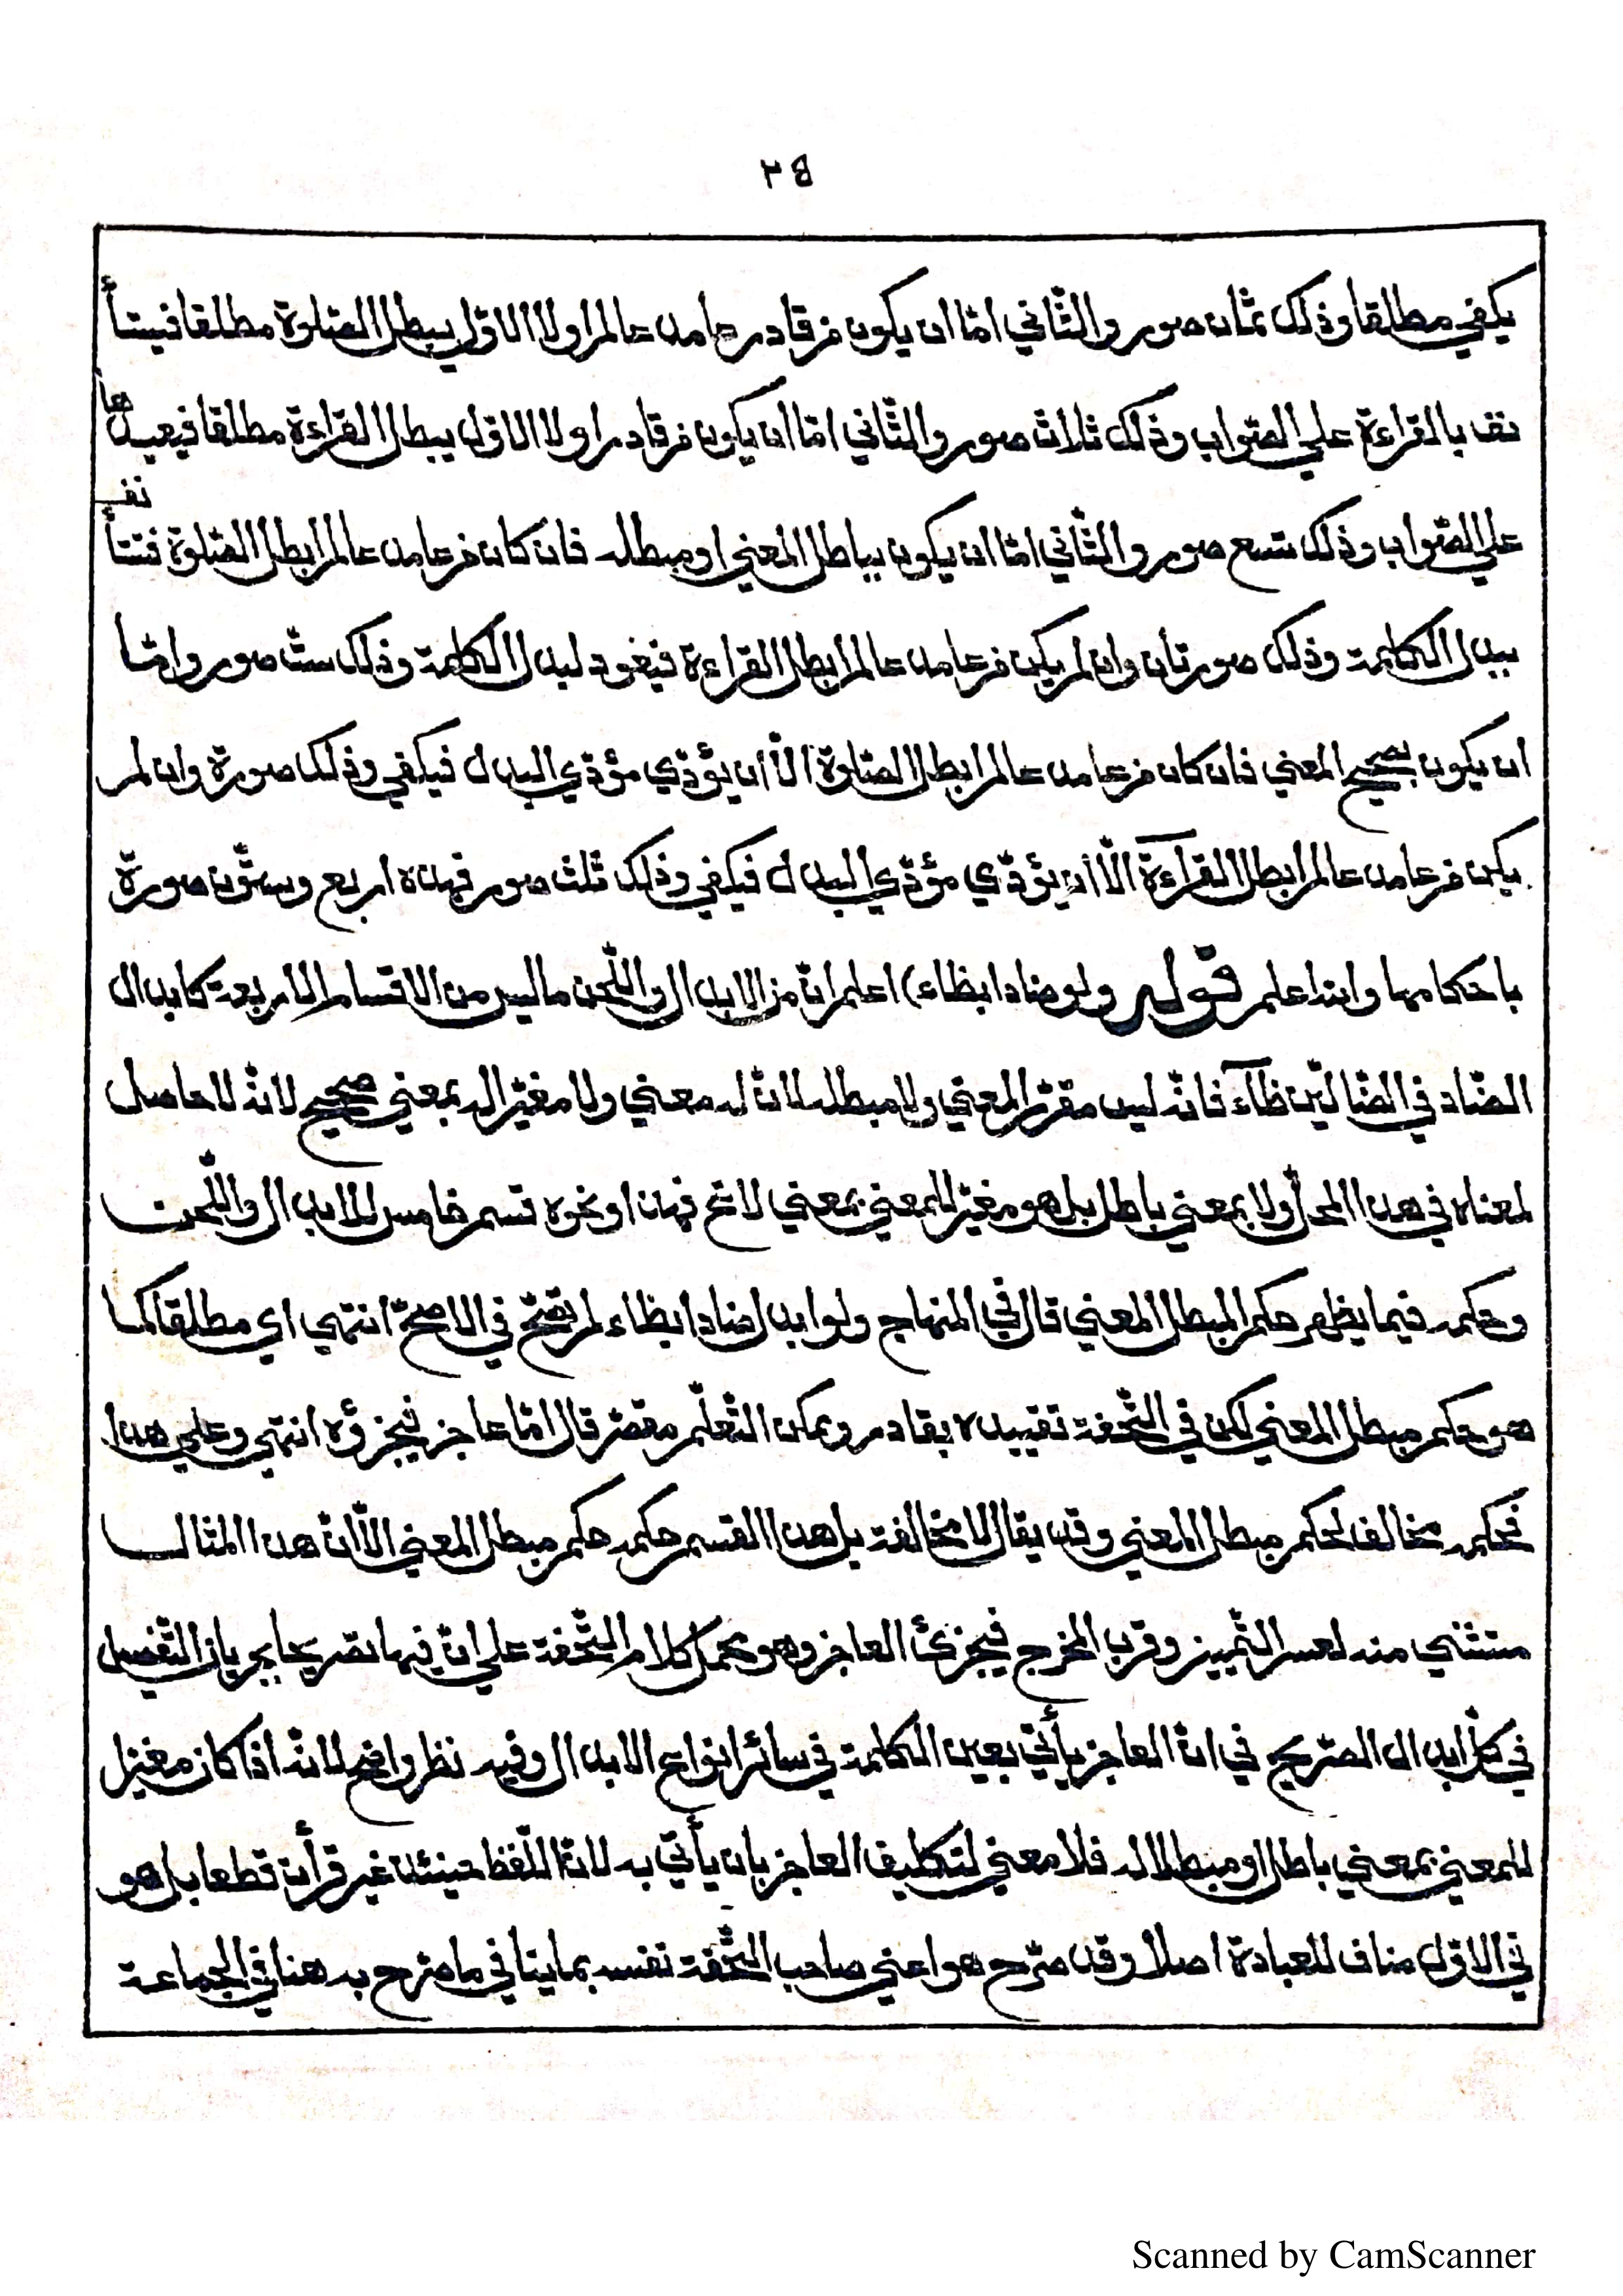 ٣٤
يكفي مطلقا وذلك ثمان صور والثّاني امّا ان يكون من قادر عامد عالم اولا الاوّل يبطل الصّلوة مطلقا فيستأ
نف بالقراءة علي الصّواب وذلك ثلاث صور والثّاني امّا ان يكون من قادر اولا الاوّل يبطل القراءة مطلقا فيعيدها
علي الصّواب وذلك تسع صور والثّاني امّا ان يكون بباطل المعني او مبطله فان كان من عامد عالم ابطل الصّلوة فتستأنف
ببدل الكلمة وذلك صورتان وان لم يكن من عامد عالم ابطل القراءة فيعود لبدل الكلمة وذلك ستّ صور وامّا
ان يكون بصحيح المعني فان كان من عامد عالم ابطل الصّلوة الّا ان يؤدّي مؤدّي البدل فيكفي وذلك صورة وان لم
يكن من عامد عالم ابطل القراءة الّا ان يؤدّي مؤدّي البدل فيكفي وذلك ثلث صور فهذه اربع وستّون صورة
باحكامها والله اعلم قوله ولو ضادا بظاء) اعلم انّ من الابدال واللّحن ما ليس من الاقسام الاربعة كابدال
الضّاد في الضّالّين ظآء فانّه ليس مقرّر المعني ولا مبطله لانّ له معني ولا مغيّر اله بمعني صحيح لانّه لا حاصل
لمعناه في هذا المحل ولا بمعني باطل بل هو مغيّر للمعني بمعني لاغ فهذا ونحوه قسم خامس للابدال واللّحن
وحكمه فيما يظهر حكم المبطل المعني قال في المنهاج ولو ابدل ضادا بظاء لم تصحّ في الاصحّ انتهي اي مطلقا كما
هو حكم مبطل المعني لكن في التّحفة تقييده بقادر ويمكن التّعلّم مقصّر قال امّا عاجز فيجزؤه انتهي وعلي هذا
فحكمه مخالف لحكم مبطل المعني وقد يقال لا مخالفة بل هذا القسم حكمه حكم مبطل المعني الّا انّ هذا المثال
مستثني منه لعسر التّمييز وقرب المخرج فيجزئ العاجز وهو محمل كلام التّحفة علي انّ فيها تصريحا بجريان التّفصيل
في كلّ ابدال الصّريح في انّ العاجز يأتي بعين الكلمة في سائر انواع الابدال وفيه نظر واضح لانّه اذا كان مغيّرا
للمعني بمعني باطل او مبطلا له فلا معني لتكليف العاجز بان يأتي به لانّ اللّفظ حينئذ غير قرأن قطعا بل هو
في الاوّل مناف للعبادة اصلا وقد صرّح هو اعني صاحب التّحفة نفسه بما ينافي ما صرّح به هنا في الجماعة
Scanned by CamScanner